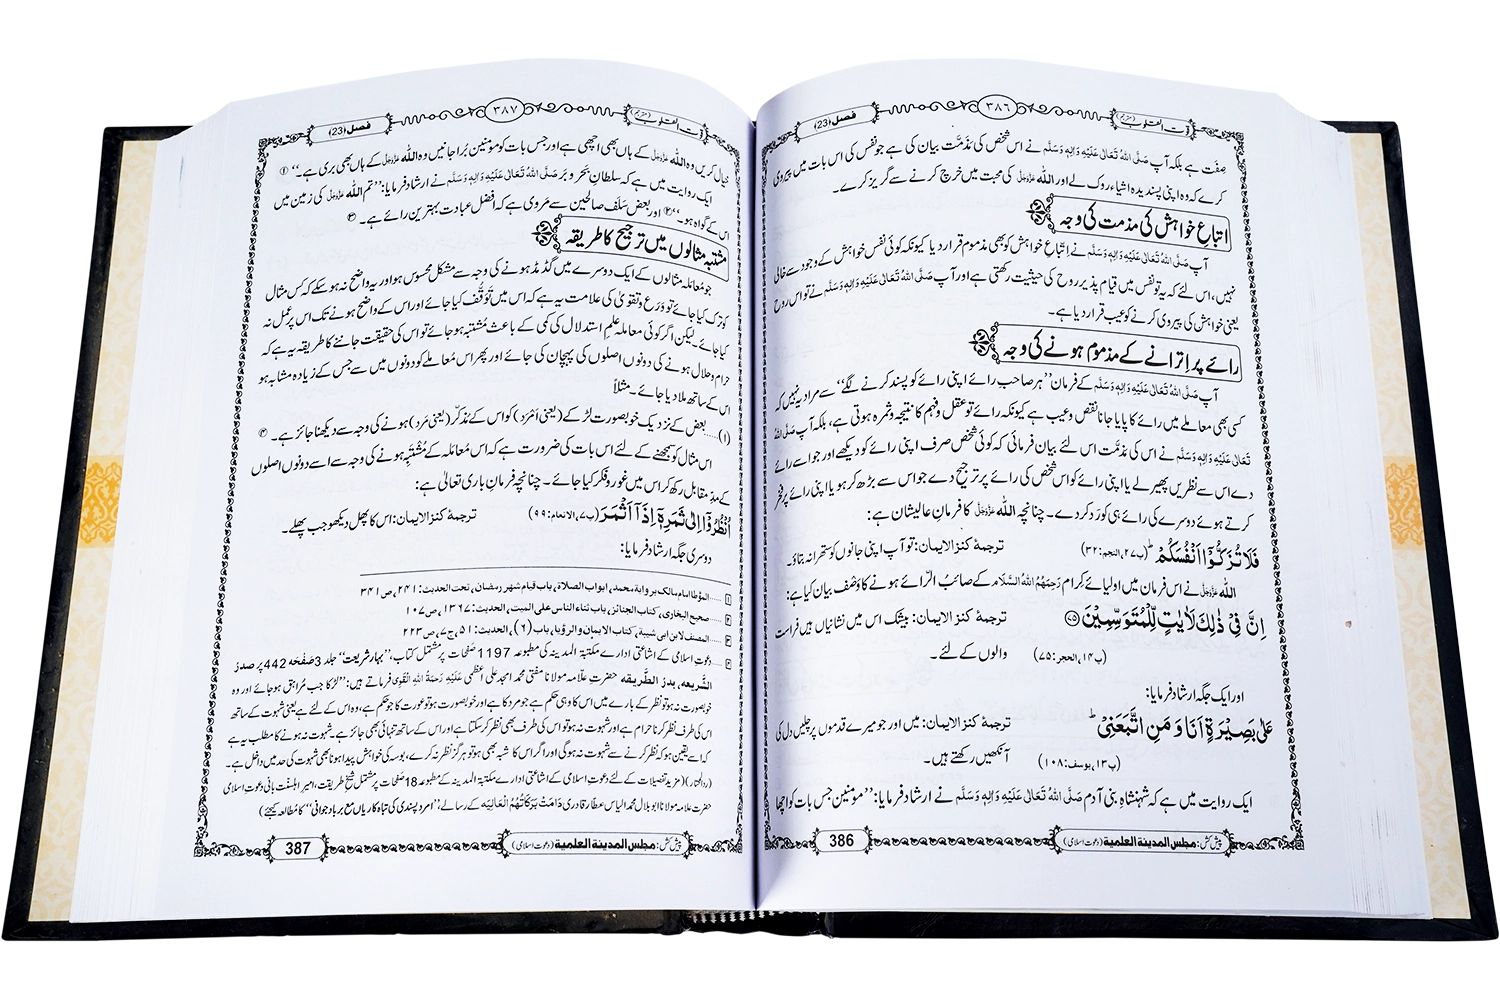 قوت القلوب (مترجم)
٣٨٦
فصل (23)
صِفَت ہے بلکہ آپ صَلَّی اللّٰہُ تَعَالٰی عَلَیْہِ وَاٰلِہٖ وَسَلَّم نے اس شخص کی مَذَمَّت بیان کی ہے جو نفس کی اس بات میں پیروی
کرے کہ وہ اپنی پسندیدہ اشیاء روک لے اور اللّٰہ عَزَّوَجَلَّ کی محبت میں خرچ کرنے سے گریز کرے۔
اتباعِ خواہش کی مذمت کی وجہ
آپ صَلَّی اللّٰہُ تَعَالٰی عَلَیْہِ وَاٰلِہٖ وَسَلَّم نے اِتباعِ خواہش کو بھی مذموم قرار دیا کیونکہ کوئی نفس خواہش کے وجود سے خالی
نہیں، اس لئے کہ یہ تو نفس میں قیام پذیر روح کی حیثیت رکھتی ہے اور آپ صَلَّی اللّٰہُ تَعَالٰی عَلَیْہِ وَاٰلِہٖ وَسَلَّم نے تو اس روح
یعنی خواہش کی پیروی کرنے کو عیب قرار دیا ہے۔
رائے پر اِترانے کے مذموم ہونے کی وجہ
آپ صَلَّی اللّٰہُ تَعَالٰی عَلَیْہِ وَاٰلِہٖ وَسَلَّم کے فرمان ’’ہر صاحب رائے اپنی رائے کو پسند کرنے لگے‘‘ سے مراد یہ نہیں کہ
کسی بھی معاملے میں رائے کا پایا جانا نقص و عیب ہے کیونکہ رائے تو عقل و فہم کا نتیجہ و ثمرہ ہوتی ہے، بلکہ آپ صَلَّی اللّٰہُ
تَعَالٰی عَلَیْہِ وَاٰلِہٖ وَسَلَّم نے اس کی مَذَمَّت اس لئے بیان فرمائی کہ کوئی شخص صرف اپنی رائے کو دیکھے اور جو اسے رائے
دے اس سے نظریں پھیر لے یا اپنی رائے کو اس شخص کی رائے پر ترجیح دے جو اس سے بڑھ کر ہو یا اپنی رائے پر فخر
کرتے ہوئے دوسرے کی رائے ہی کو رَد کر دے۔ چنانچہ اللّٰہ عَزَّوَجَلَّ کا فرمانِ عالیشان ہے:
فَلَا تُزَكُّوْۤا اَنْفُسَكُمْؕ (پ۲۷، النجم: ۳۲) ترجمۂ کنز الایمان: تو آپ اپنی جانوں کو ستھرا نہ بتاؤ۔
اللّٰہ عَزَّوَجَلَّ نے اس فرمان میں اولیائے کِرام رَحِمَہُمُ اللّٰہُ السَّلَام کے صائبُ الرّائے ہونے کا وَصْف بیان کیا ہے:
اِنَّ فِیْ ذٰلِكَ لَاٰیٰتٍ لِّلْمُتَوَسِّمِیْنَ(۷۵) ترجمۂ کنز الایمان: بیشک اس میں نشانیاں ہیں فراست
(پ۱۴، الحجر: ۷۵) والوں کے لئے۔
اور ایک جگہ ارشاد فرمایا:
عَلٰى بَصِیْرَةٍ اَنَا وَ مَنِ اتَّبَعَنِیْؕ ترجمۂ کنز الایمان: میں اور جو میرے قدموں پر چلیں دل کی
(پ۱۳، یوسف: ۱۰۸) آنکھیں رکھتے ہیں۔
ایک روایت میں ہے کہ شہنشاہِ بنی آدم صَلَّی اللّٰہُ تَعَالٰی عَلَیْہِ وَاٰلِہٖ وَسَلَّم نے ارشاد فرمایا: ’’مومنین جس بات کو اچھا
پیش کش: مجلس المدینۃ العلمیۃ (دعوتِ اسلامی)
386
قوت القلوب (مترجم)
٣٨٧
فصل (23)
خیال کریں وہ اللّٰہ عَزَّوَجَلَّ کے ہاں بھی اچھی ہے اور جس بات کو مومنین بُرا جانیں وہ اللّٰہ عَزَّوَجَلَّ کے ہاں بھی بری ہے۔‘‘ ①
ایک روایت میں ہے کہ سلطانِ بَحر و بَر صَلَّی اللّٰہُ تَعَالٰی عَلَیْہِ وَاٰلِہٖ وَسَلَّم نے ارشاد فرمایا: ’’تم اللّٰہ عَزَّوَجَلَّ کی زمین میں
اس کے گواہ ہو۔‘‘② اور بعض سَلَف صالحین سے مَروی ہے کہ افضل عبادت بہترین رائے ہے۔ ③
مشتبہ مثالوں میں ترجیح کا طریقہ
جو مُعاملہ مثالوں کے ایک دوسرے میں گڈمڈ ہونے کی وجہ سے مشکل محسوس ہو اور یہ واضح نہ ہو سکے کہ کس مثال
کو ترک کیا جائے تو وَرَع و تقویٰ کی علامت یہ ہے کہ اس میں تَوَقُّف کیا جائے اور اس کے واضح ہونے تک اس پر عمل نہ
کیا جائے۔ لیکن اگر کوئی معاملہ علمِ استدلال کی کمی کے باعث مُشتبہ ہو جائے تو اس کی حقیقت جاننے کا طریقہ یہ ہے کہ
حرام و حلال ہونے کی دونوں اصلوں کی پہچان کی جائے اور پھر اس مُعاملے کو دونوں میں سے جس کے زیادہ مشابہ ہو
اس کے ساتھ ملا دیا جائے۔ مثلاً
(۱)..... بعض کے نزدیک خوبصورت لڑکے (یعنی اَمْرَد) کو اس کے مُذَکَّر (یعنی مَرد) ہونے کی وجہ سے دیکھنا جائز ہے۔ ④
اس مثال کو سمجھنے کے لئے اس بات کی ضرورت ہے کہ اس مُعاملہ کے مُشْتَبِہ ہونے کی وجہ سے اسے دونوں اصلوں
کے مدِّ مقابل رکھ کر اس میں غور و فکر کیا جائے۔ چنانچہ فرمانِ باری تعالیٰ ہے:
اُنْظُرُوْۤا اِلٰى ثَمَرِهٖۤ اِذَاۤ اَثْمَرَ (پ۷، الانعام: ۹۹) ترجمۂ کنز الایمان: اس کا پھل دیکھو جب پھلے۔
دوسری جگہ ارشاد فرمایا:
①..... المؤطا امام مالک بروایة محمد، ابواب الصلاة، باب قیام شھر رمضان، تحت الحدیث: ۲۴۱، ص۳۴۱
②..... صحیح البخاری، کتاب الجنائز، باب ثناء الناس علی المیت، الحدیث: ۱۳۶۷، ص۱۰۷
③..... المصنف لابن ابی شیبة، کتاب الایمان والرؤیا، باب (۶)، الحدیث: ۵۱، ج۷، ص۲۲۳
④..... دعوتِ اسلامی کے اشاعتی ادارے مکتبۃ المدینہ کی مطبوعہ 1197 صفحات پر مشتمل کتاب، ’’بہارِ شریعت‘‘ جلد 3 صَفْحَہ 442 پر صدرُ
الشَّریعہ، بدرُ الطَّریقہ حضرتِ علّامہ مولانا مفتی محمد امجد علی اعظمی عَلَیْہِ رَحْمَۃُ اللّٰہِ الْقَوِی فرماتے ہیں: ’’لڑکا جب مُراہِق ہو جائے اور وہ
خوبصورت نہ ہو تو نظر کے بارے میں اس کا وہی حکم ہے جو مرد کا ہے اور خوبصورت ہو تو عورت کا جو حکم ہے، وہ اس کے لئے ہے یعنی شہوت کے ساتھ
اس کی طرف نظر کرنا حرام ہے اور شہوت نہ ہو تو اس کی طرف بھی نظر کر سکتا ہے اور اس کے ساتھ تنہائی بھی جائز ہے۔ شہوت نہ ہونے کا مطلب یہ ہے
کہ اسے یقین ہو کہ نظر کرنے سے شہوت نہ ہوگی اور اگر اس کا شبہ بھی ہو تو ہرگز نظر نہ کرے، بوسہ کی خواہش پیدا ہونا بھی شہوت کی حد میں داخل ہے۔
(ردالمحتار) (مزید تفصیلات کے لئے دعوتِ اسلامی کے اشاعتی ادارے مکتبۃ المدینہ کے مطبوعہ 18 صفحات پر مشتمل شیخِ طریقت، امیرِ اہلسنّت بانی دعوتِ اسلامی
حضرت علامہ مولانا ابو بلال محمد الیاس عطار قادری دَامَتْ بَرَکَاتُہُمُ الْعَالِیَہ کے رسالے، ’’امرد پسندی کی تباہ کاریاں مع بربادِ جوانی‘‘ کا مطالعہ کیجئے)
پیش کش: مجلس المدینۃ العلمیۃ (دعوتِ اسلامی)
387